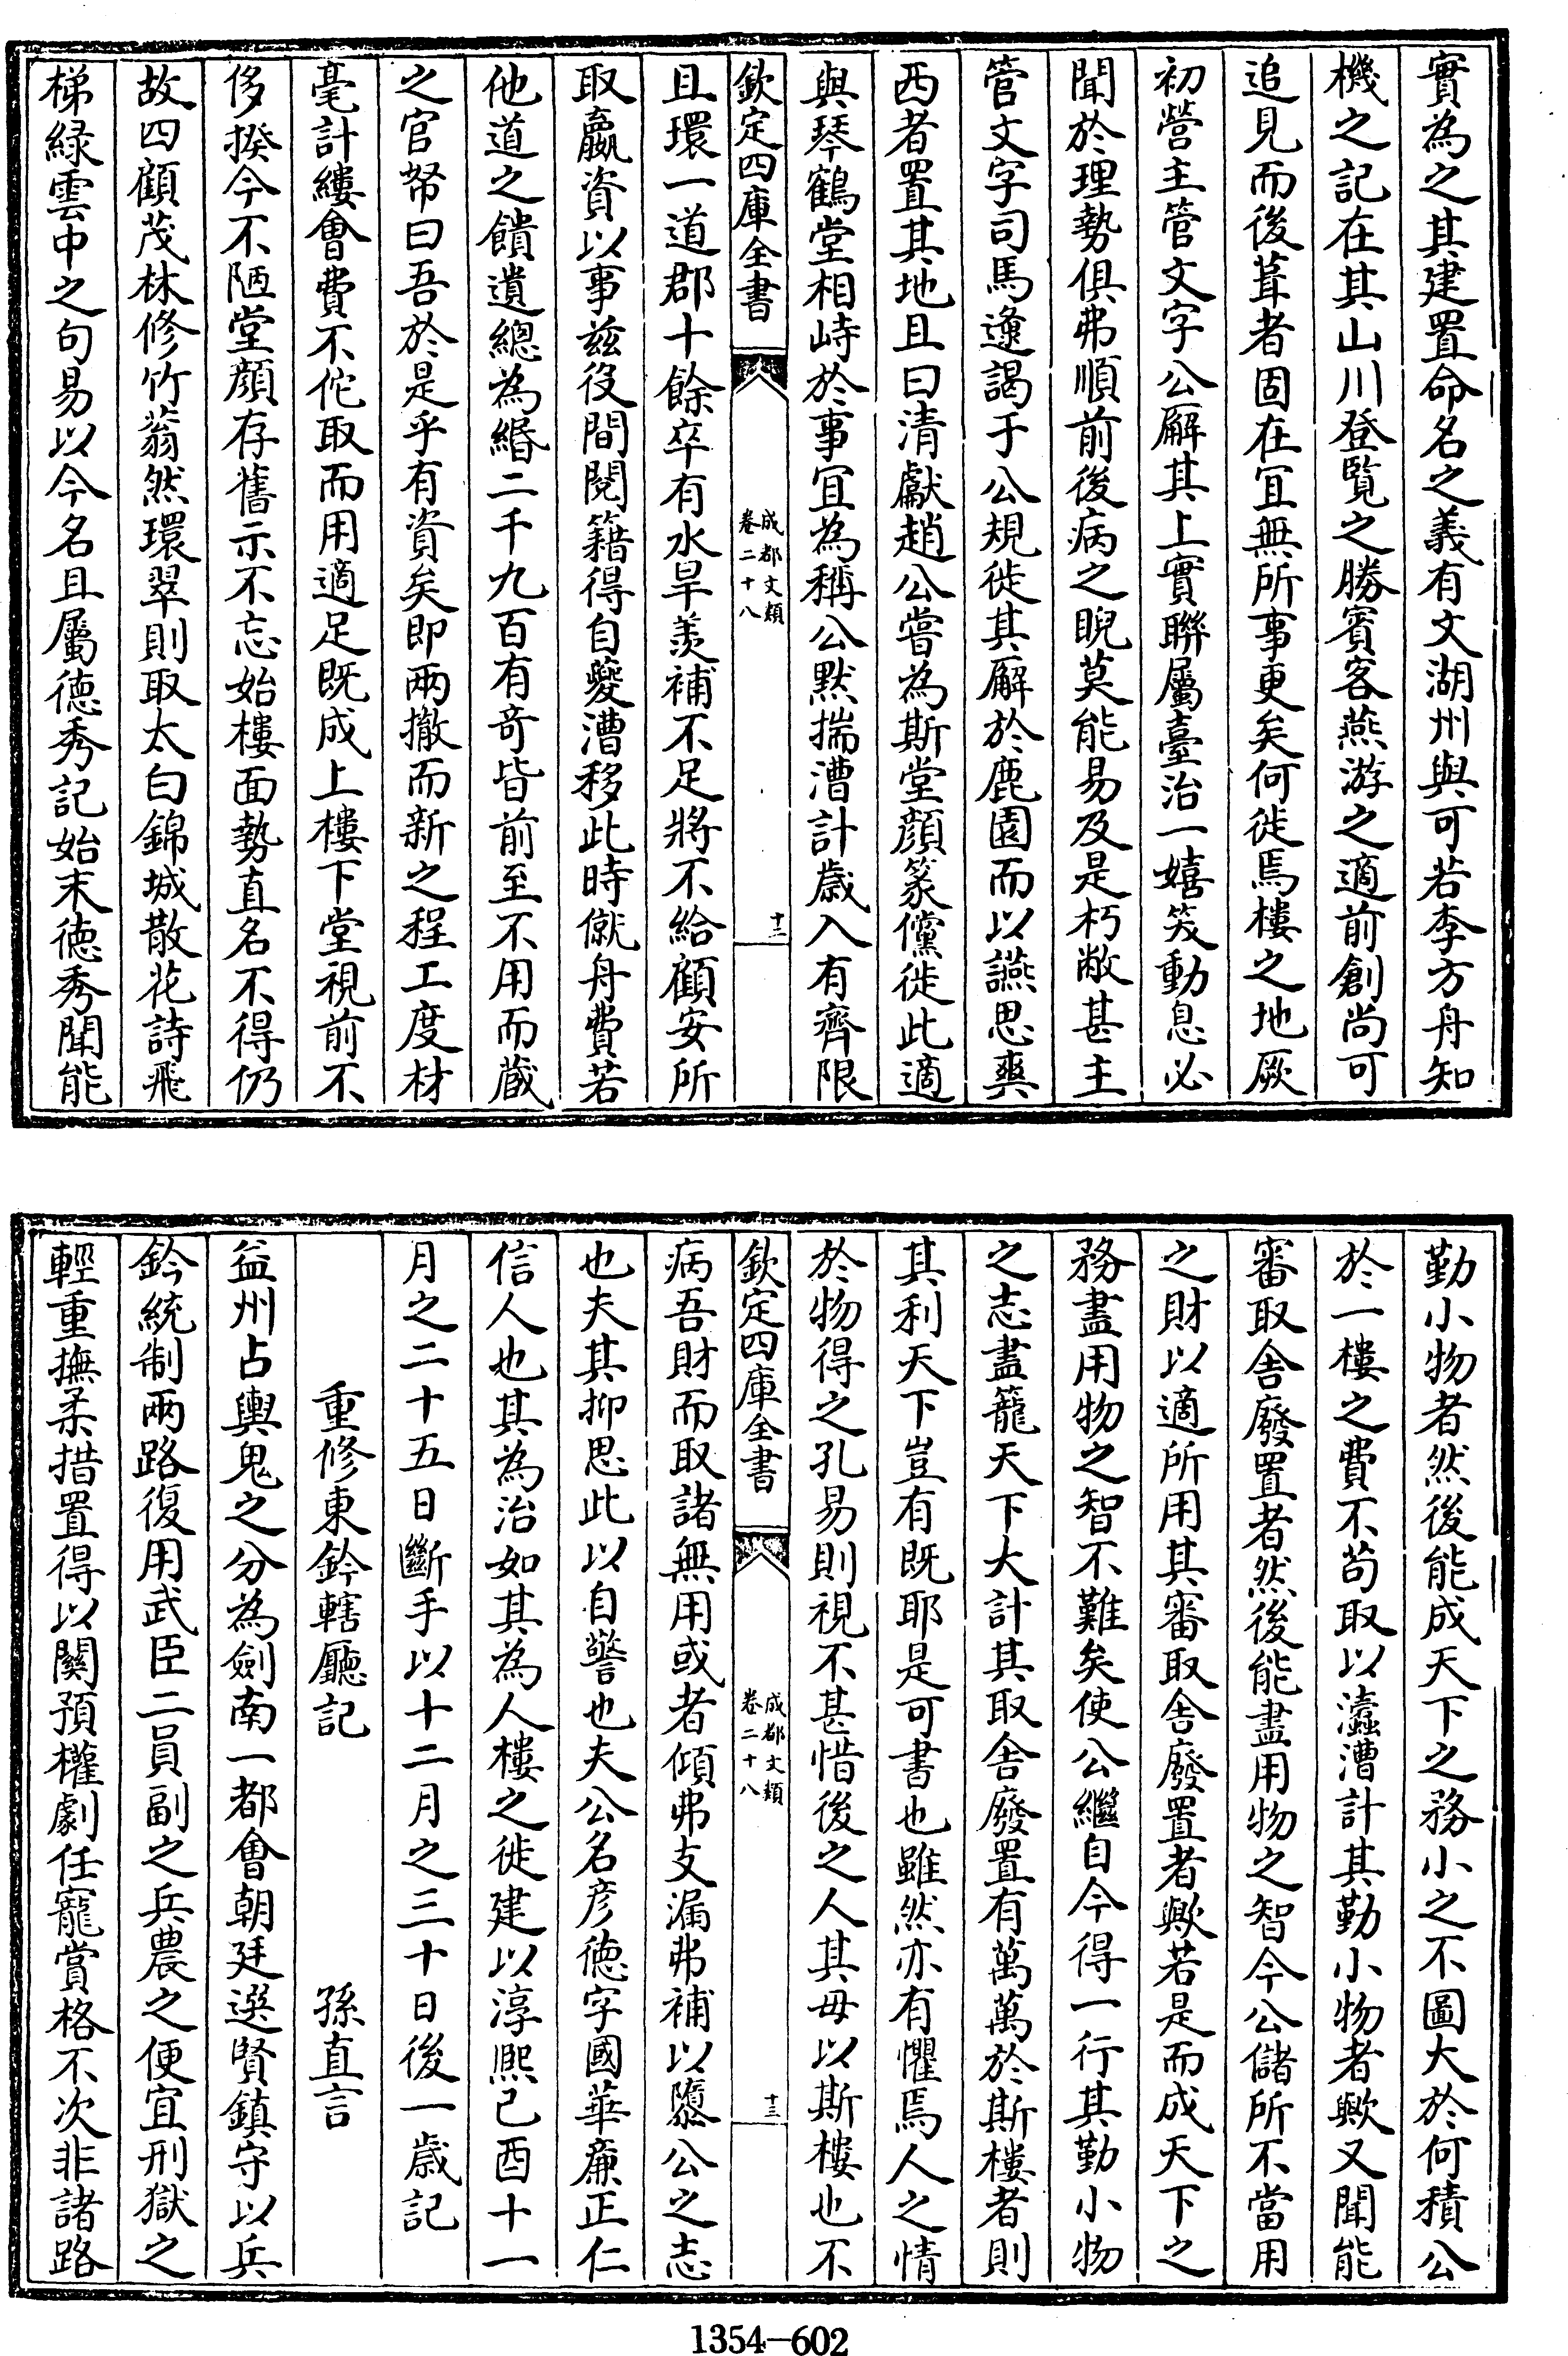 實為之其建置命名之義有文湖州與可若李方舟知
機之記在其山川登覽之勝賓客燕游之適前創尚可
追見而後葺者固在宜無所事更矣何徙焉樓之地厥
初營主管文字公廨其上實聯屬臺治一嬉笑動息必
聞於理勢俱弗順前後病之睨莫能易及是朽敝甚主
管文字司馬𨗿謁于公規徙其廨於鹿園而以讌思爽
西者置其地且曰清獻趙公嘗為斯堂顔篆儻徙此適
與琴鶴堂相峙於事宜為稱公默揣漕計歲入有齊限
欽定四庫全書
成都文類
卷二十八
十二
且環一道郡十餘卒有水旱羨補不足將不給顧安所
取贏資以事茲役間閱籍得自夔漕移此時僦舟費若
他道之饋遺總為緡二千九百有奇皆前至不用而藏
之官帑曰吾於是乎有資矣即兩撤而新之程工度材
毫計縷會費不佗取而用適足既成上樓下堂視前不
侈揆今不陋堂顔存舊示不忘始樓面勢直名不得仍
故四顧茂林修竹蓊然環翠則取太白錦城散花詩飛
梯緑雲中之句易以今名且屬徳秀記始末徳秀聞能
勤小物者然後能成天下之務小之不圖大於何積公
於一樓之費不苟取以蠹漕計其勤小物者歟又聞能
審取舍廢置者然後能盡用物之智今公儲所不當用
之財以適所用其審取舍廢置者歟若是而成天下之
務盡用物之智不難矣使公繼自今得一行其勤小物
之志盡籠天下大計其取舍廢置有萬萬於斯樓者則
其利天下豈有既耶是可書也雖然亦有懼焉人之情
於物得之孔易則視不甚惜後之人其毋以斯樓也不
欽定四庫全書
成都文類
卷二十八
十三
病吾財而取諸無用或者傾弗支漏弗補以隳公之志
也夫其抑思此以自警也夫公名彦徳字國華廉正仁
信人也其為治如其為人樓之徙建以淳熙己酉十一
月之二十五日斷手以十二月之三十日後一歲記
重修東鈐轄廳記　孫直言
益州占輿鬼之分為劍南一都會朝廷選賢鎮守以兵
鈐統制兩路復用武臣二員副之兵農之便宜刑獄之
輕重撫柔措置得以關預權劇任寵賞格不次非諸路
1354-602